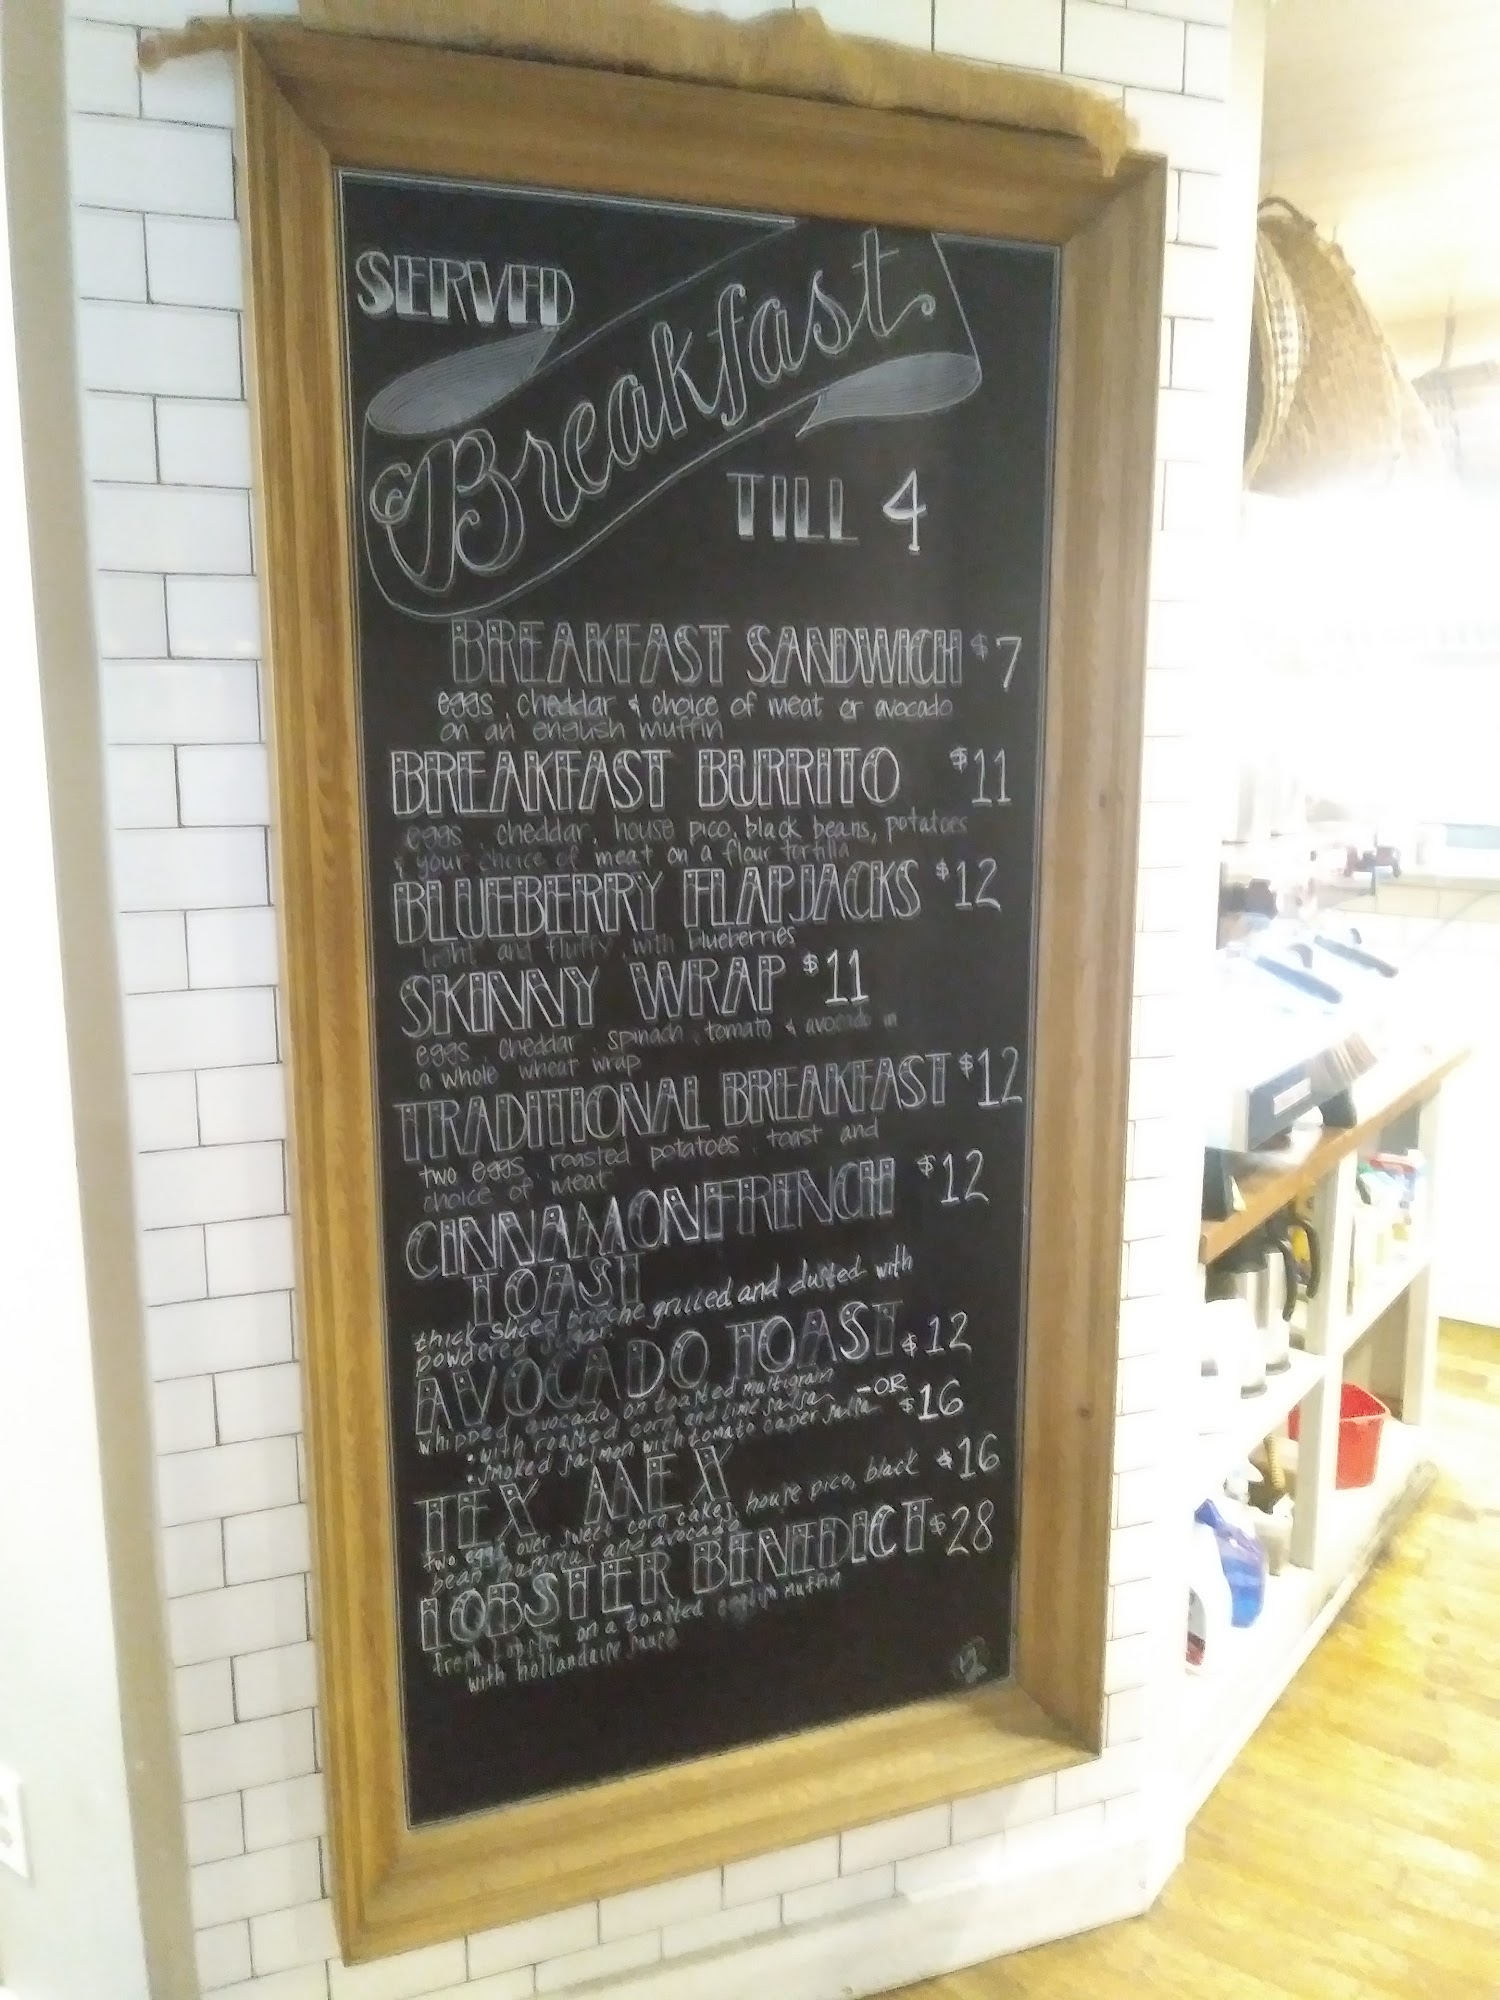 SERVED
Breakfast
TILL 4
BREAKFAST SANDWICH $7
eggs, cheddar & choice of meat or avocado
on an english muffin
BREAKFAST BURRITO $11
eggs, cheddar, house pico, black beans, potatoes
& your choice of meat on a flour tortilla
BLUEBERRY FLAPJACKS $12
light and fluffy with blueberries
SKINNY WRAP $11
eggs, cheddar, spinach, tomato & avocado in
a whole wheat wrap
TRADITIONAL BREAKFAST $12
two eggs, roasted potatoes, toast and
choice of meat
CINNAMON FRENCH $12
TOAST
thick sliced brioche grilled and dusted with
powdered sugar.
AVOCADO TOAST $12
whipped avocado on toasted multigrain
: with roasted corn and lime salsa -OR
: smoked salmon with tomato caper salsa $16
TEX MEX $16
two eggs over sweet corn cakes, house pico, black
bean hummus and avocado
LOBSTER BENEDICT $28
fresh lobster on a toasted english muffin
with hollandaise sauce